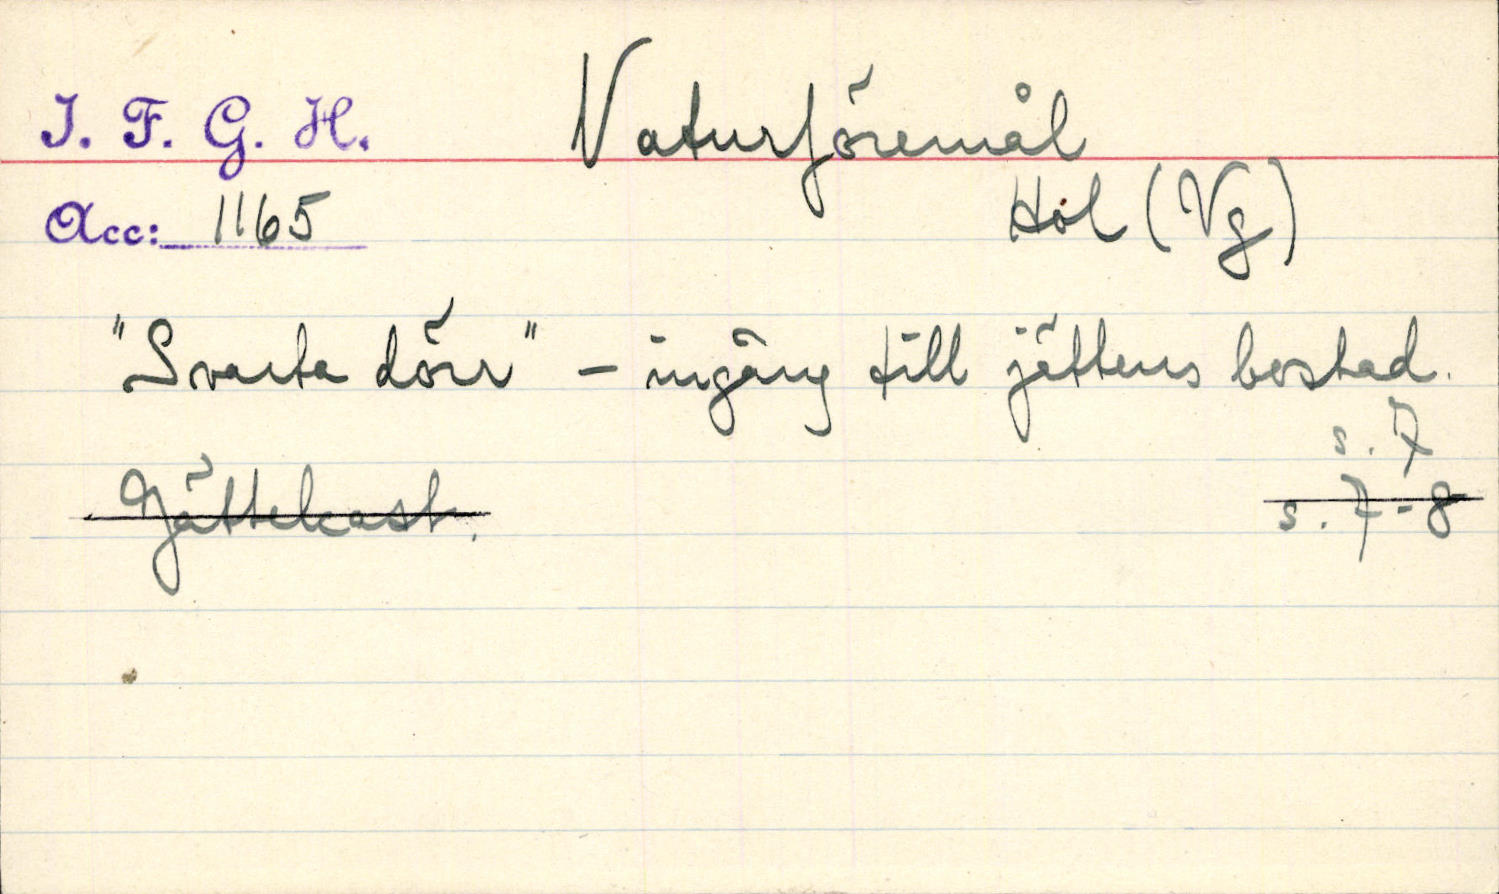 I. F. G. H. Naturföremål
Acc: 1165 Hol (Vg)
"Svarta dörr" – ingång till jättens bostad.
s. 7
Jättekast. s. 7-8